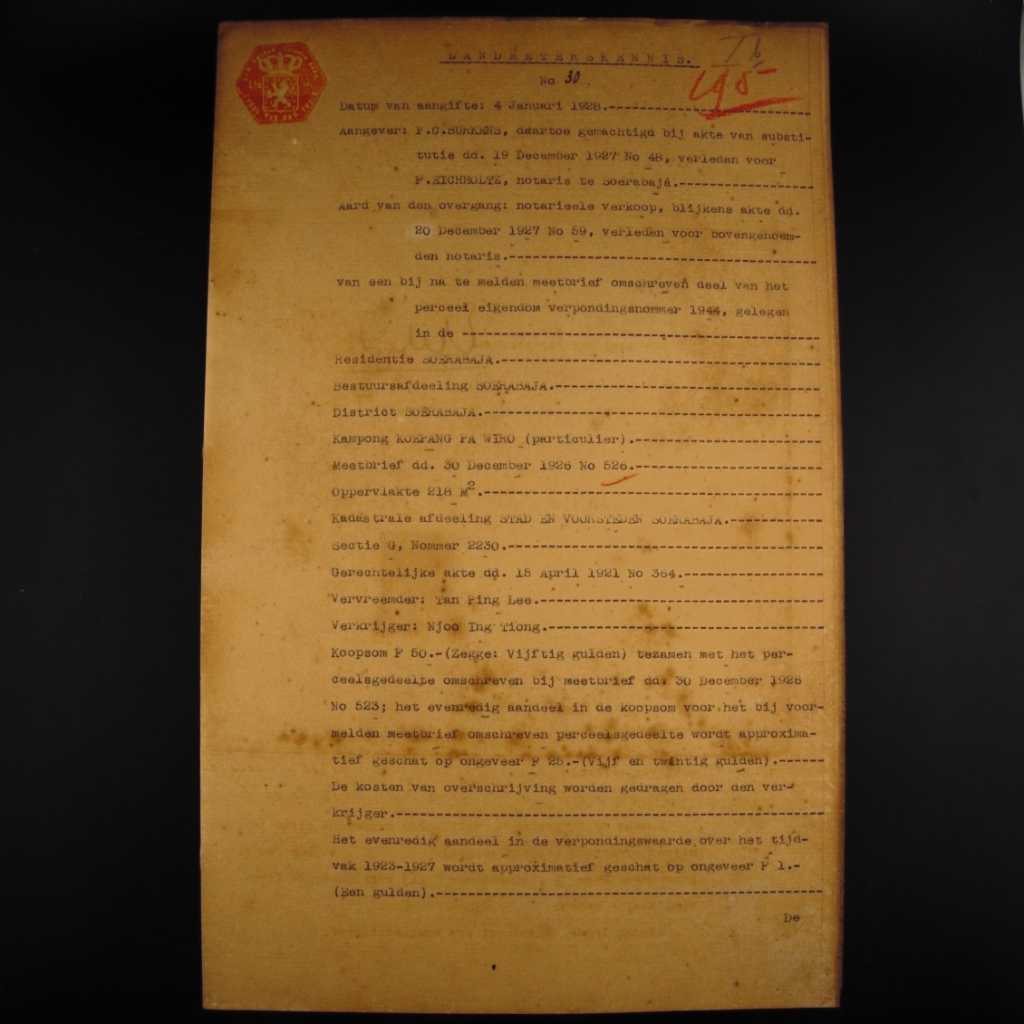 LANDMETERSKENNIS.
No 30.
195
Datum van aangifte: 4 Januari 1928.
Aangever: daartoe gemachtigd bij akte van substi-
tutie dd. 19 December 1927 No 48, verleden voor
F.EICHHOLTZ, notaris te Soerabaja.
Aard van den overgang: notarieele verkoop, blijkens akte dd.
20 December 1927 No 59, verleden voor bovengenoem-
den notaris.
van een bij na te melden meetbrief omschreven deel van het
perceel eigendom verpondingsnommer 1944, gelegen
in de
Residentie SOERABAJA.
Bestuursafdeeling SOERABAJA.
District SOERABAJA.
Kampong KOEPANG PA WIRO (particulier).
Meetbrief dd. 30 December 1926 No 526.
Oppervlakte 218 M2.
Kadastrale afdeeling STAD EN VOORSTEDEN SOERABAJA.
Sectie G, Nommer 2230.
Gerechtelijke akte dd. 15 April 1921 No 364.
Vervreemder: Tan Ping Lee.
Verkrijger: Njoo Ing Tiong.
Koopsom F 50.-(Zegge: Vijftig gulden) tezamen met het per-
ceelsgedeelte omschreven bij meetbrief dd. 30 December 1926
No 523; het evenredig aandeel in de koopsom voor het bij voor-
melden meetbrief omschreven perceelsgedeelte wordt approxima-
tief geschat op ongeveer F 25.-(Vijf en twintig gulden).
De kosten van overschrijving worden gedragen door den ver-
krijger.
Het evenredig aandeel in de verpondingswaarde over het tijd-
vak 1923-1927 wordt approximatief geschat op ongeveer F 1.-
(Een gulden).
De